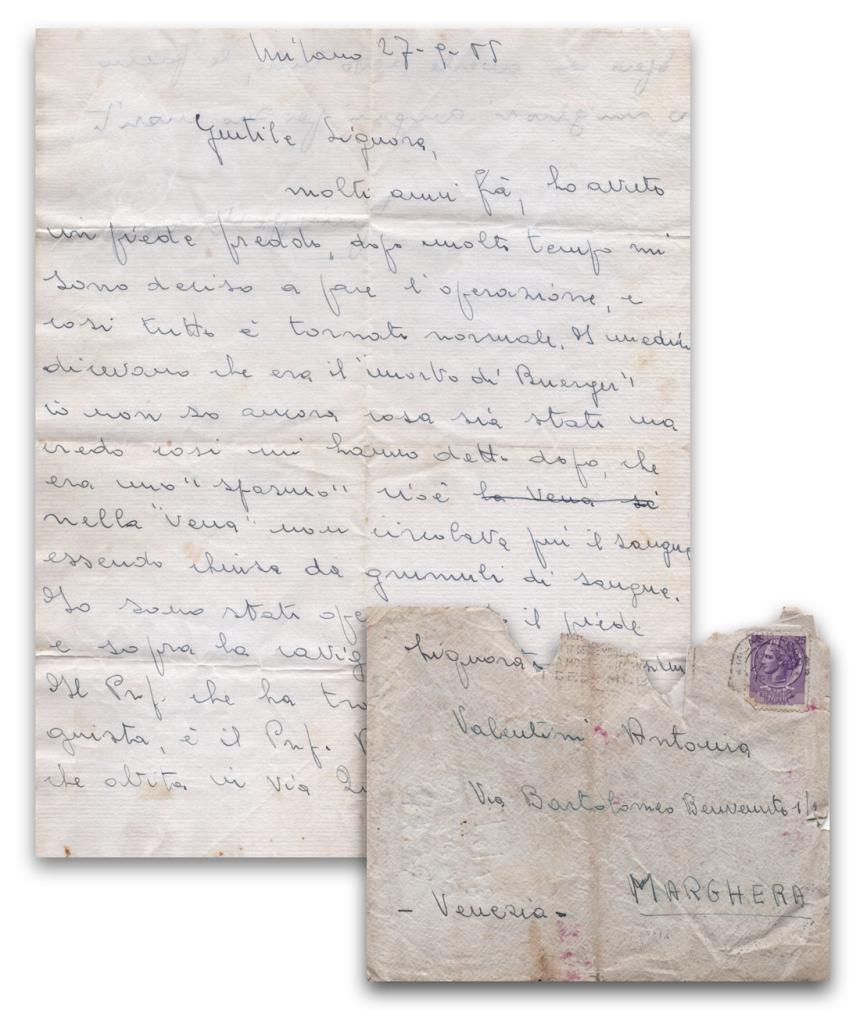 Milano 27-9-55
Gentile Signora,
molti anni fà, ho avuto
un piede freddo, dopo molto tempo mi
sono deciso a fare l'operazione, e
così tutto è tornato normale. I medici
dicevano che era il "morbo di Buerger"
io non so ancora cosa sia stato ma
credo così mi hanno detto dopo, che
era uno "spasmo" cioè la vena si
nella "vena" non circolava più il sangue
essendo chiusa da grumuli di sangue.
Io sono stato il piede
e sopra la
Il Prof. che ha
giusta, è il Prof.
che abita in Via
Signora
Valentini Antonia
Via Bartolomeo Benvenuto 1/
MARGHERA
- Venezia -